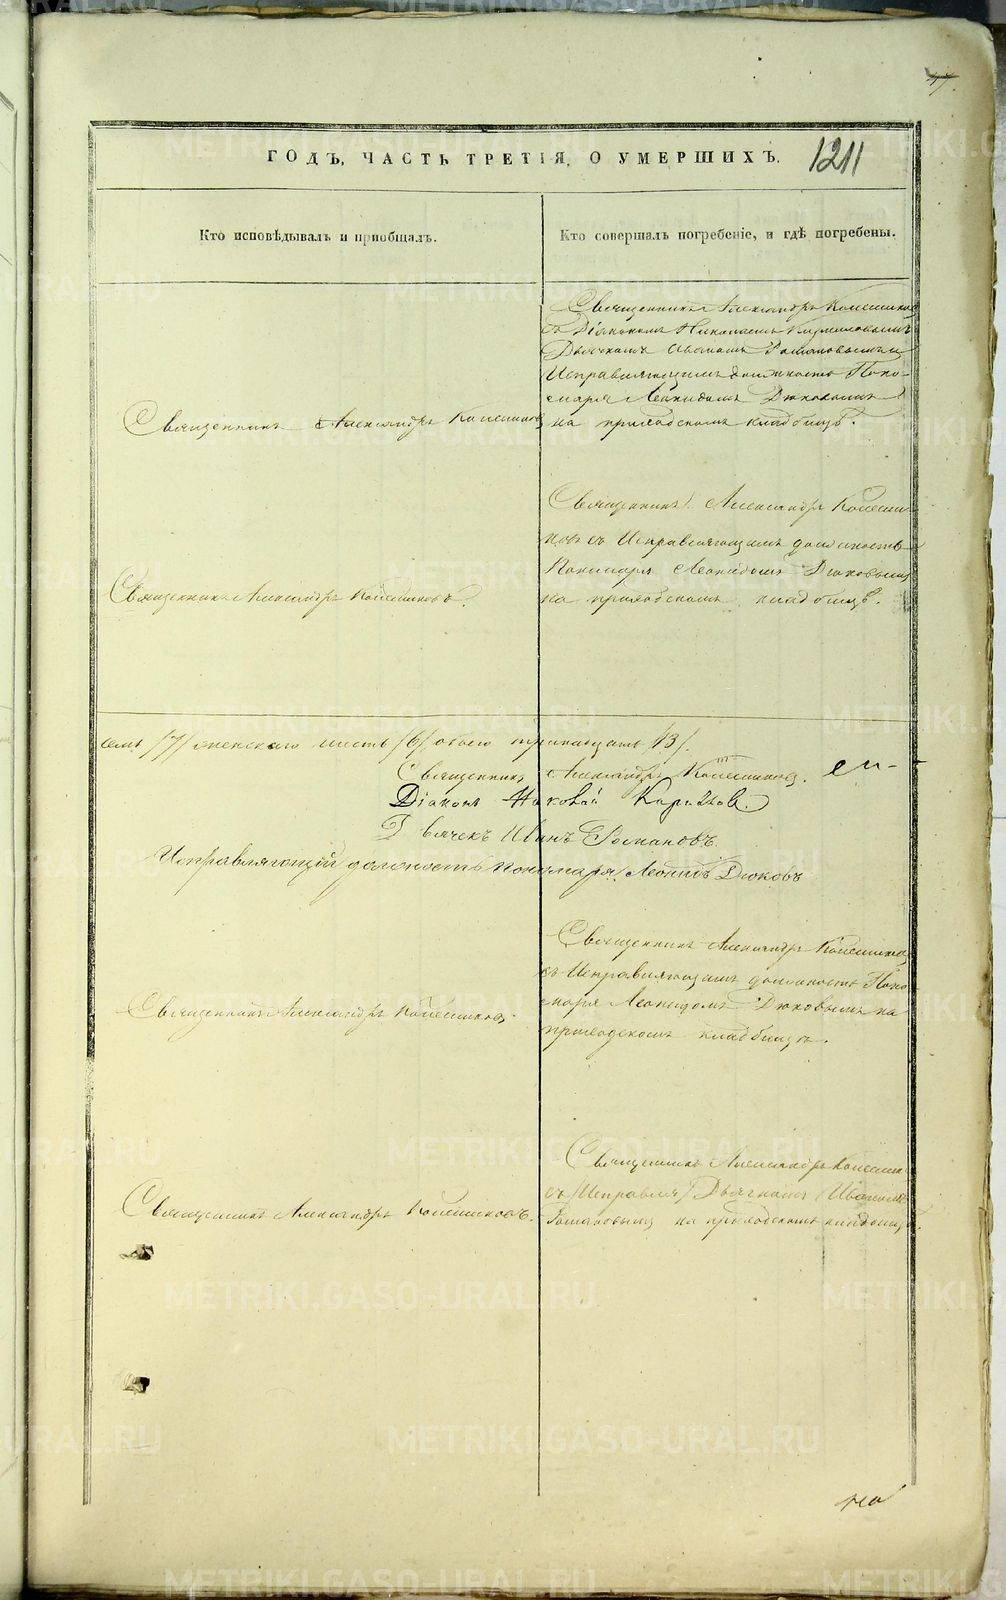 47.
ГОДЪ, ЧАСТЬ ТРЕТІЯ, О УМЕРШИХЪ.
1211
Кто исповѣдывалъ и пріобщалъ.
Кто совершалъ погребеніе, и гдѣ погребены.
Священникъ Александръ Колесников
Священникъ Александръ Колесников
съ Діакономъ Николаемъ
Дьячкомъ Иваномъ Романовымъ и
Исправляющимъ должность Поно-
маря Леонидомъ Дюковымъ
на приходскомъ кладбищѣ.
Священникъ Александръ Колесниковъ.
Священникъ Александръ Колесни-
ковъ съ Исправляющимъ должность
Пономаря Леонидомъ Дюковымъ
на приходскомъ кладбищѣ.
семь /7/ женскаго шесть /6/ обоего тринадцать /13/.
Священникъ Александръ Колесниковъ.
Діаконъ
Дьячекъ Иванъ Романовъ.
Исправляющій должность Пономаря Леонидъ Дюковъ
Священникъ Александръ Колесниковъ.
Священникъ Александръ Колесников
съ Исправляющимъ должность Поно
маря Леонидомъ Дюковымъ на
приходскомъ кладбищѣ.
Священникъ Александръ Колесниковъ.
Священникъ Александръ Колесник
съ Дьячкомъ Иваномъ
Романовымъ на приходскомъ кладбищѣ.
METRIKI.GASO-URAL.RU